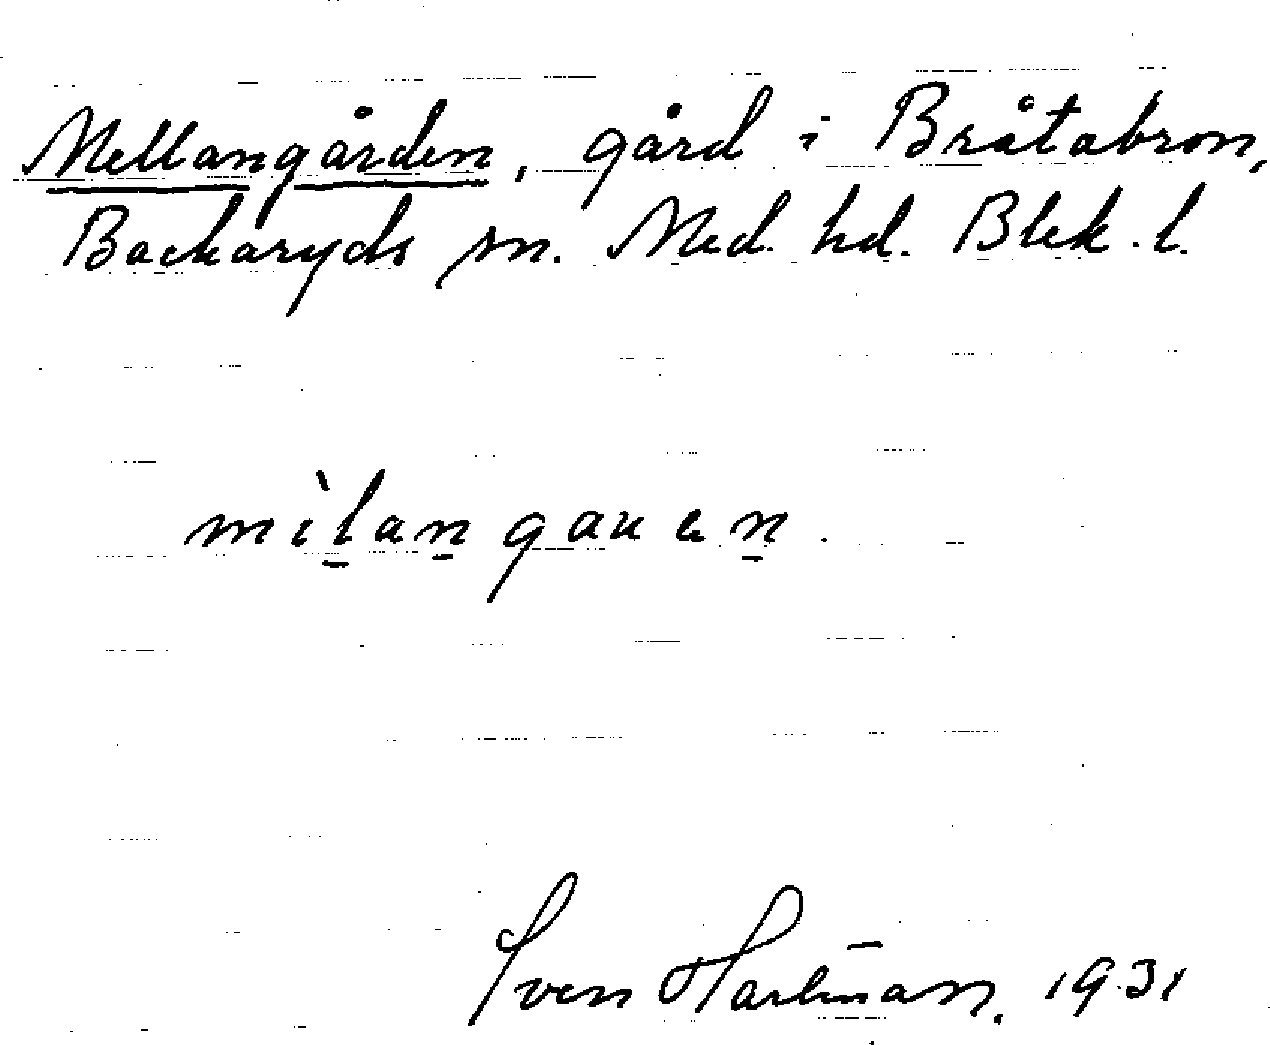 Mellangården, gård i Bråtabron,
Backaryds sn. Med. hd. Blek. l.
mìlangauen.
Sven Hartman. 1931